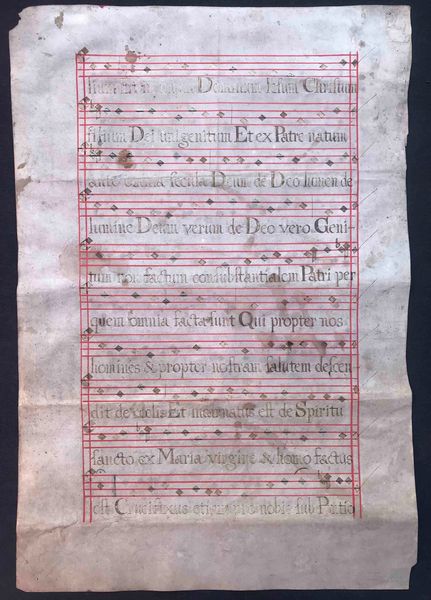 lium Et in unum Dominum Iesum Christum
filium Dei unigenitum Et ex Patre natum
ante omnia secula Deum de Deo lumen de
lumine Deum verum de Deo vero Geni-
tum non factum consubstantialem Patri per
quem omnia facta sunt Qui propter nos
homines & propter nostram salutem descen-
dit de celis Et incarnatus est de Spiritu
sancto ex Maria virgine & homo factus
est Crucifixus etiam pro nobis sub Pontio